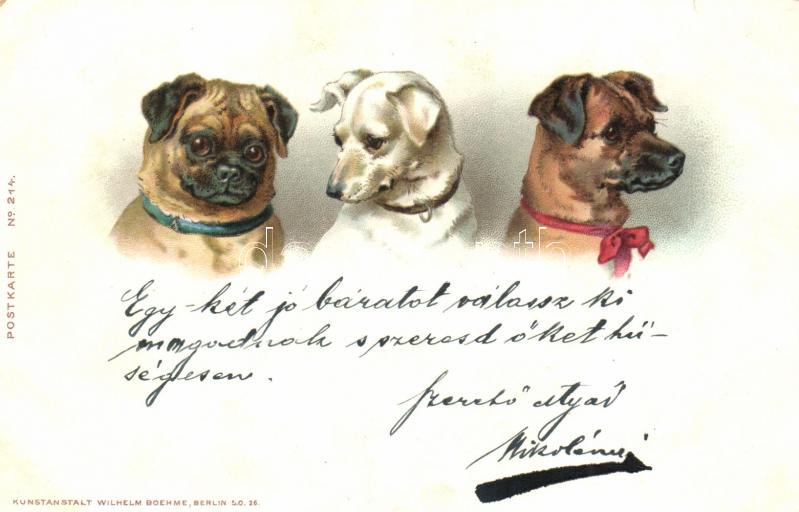 POSTKARTE Nº 214.
Egy-két jó barátot válassz ki
magadnak s szeresd őket hű-
ségesen.
Szerető Atyád
KUNSTANSTALT WILHELM BOEHME, BERLIN S.O. 26.